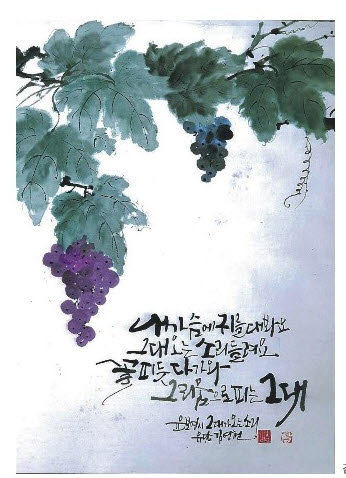 내가슴에 귀를 대봐요
그대 오는 소리 들려요
꽃피듯 다가와
그리움으로 피는 그대
윤보영 시 그대가 오는 소리
김영현